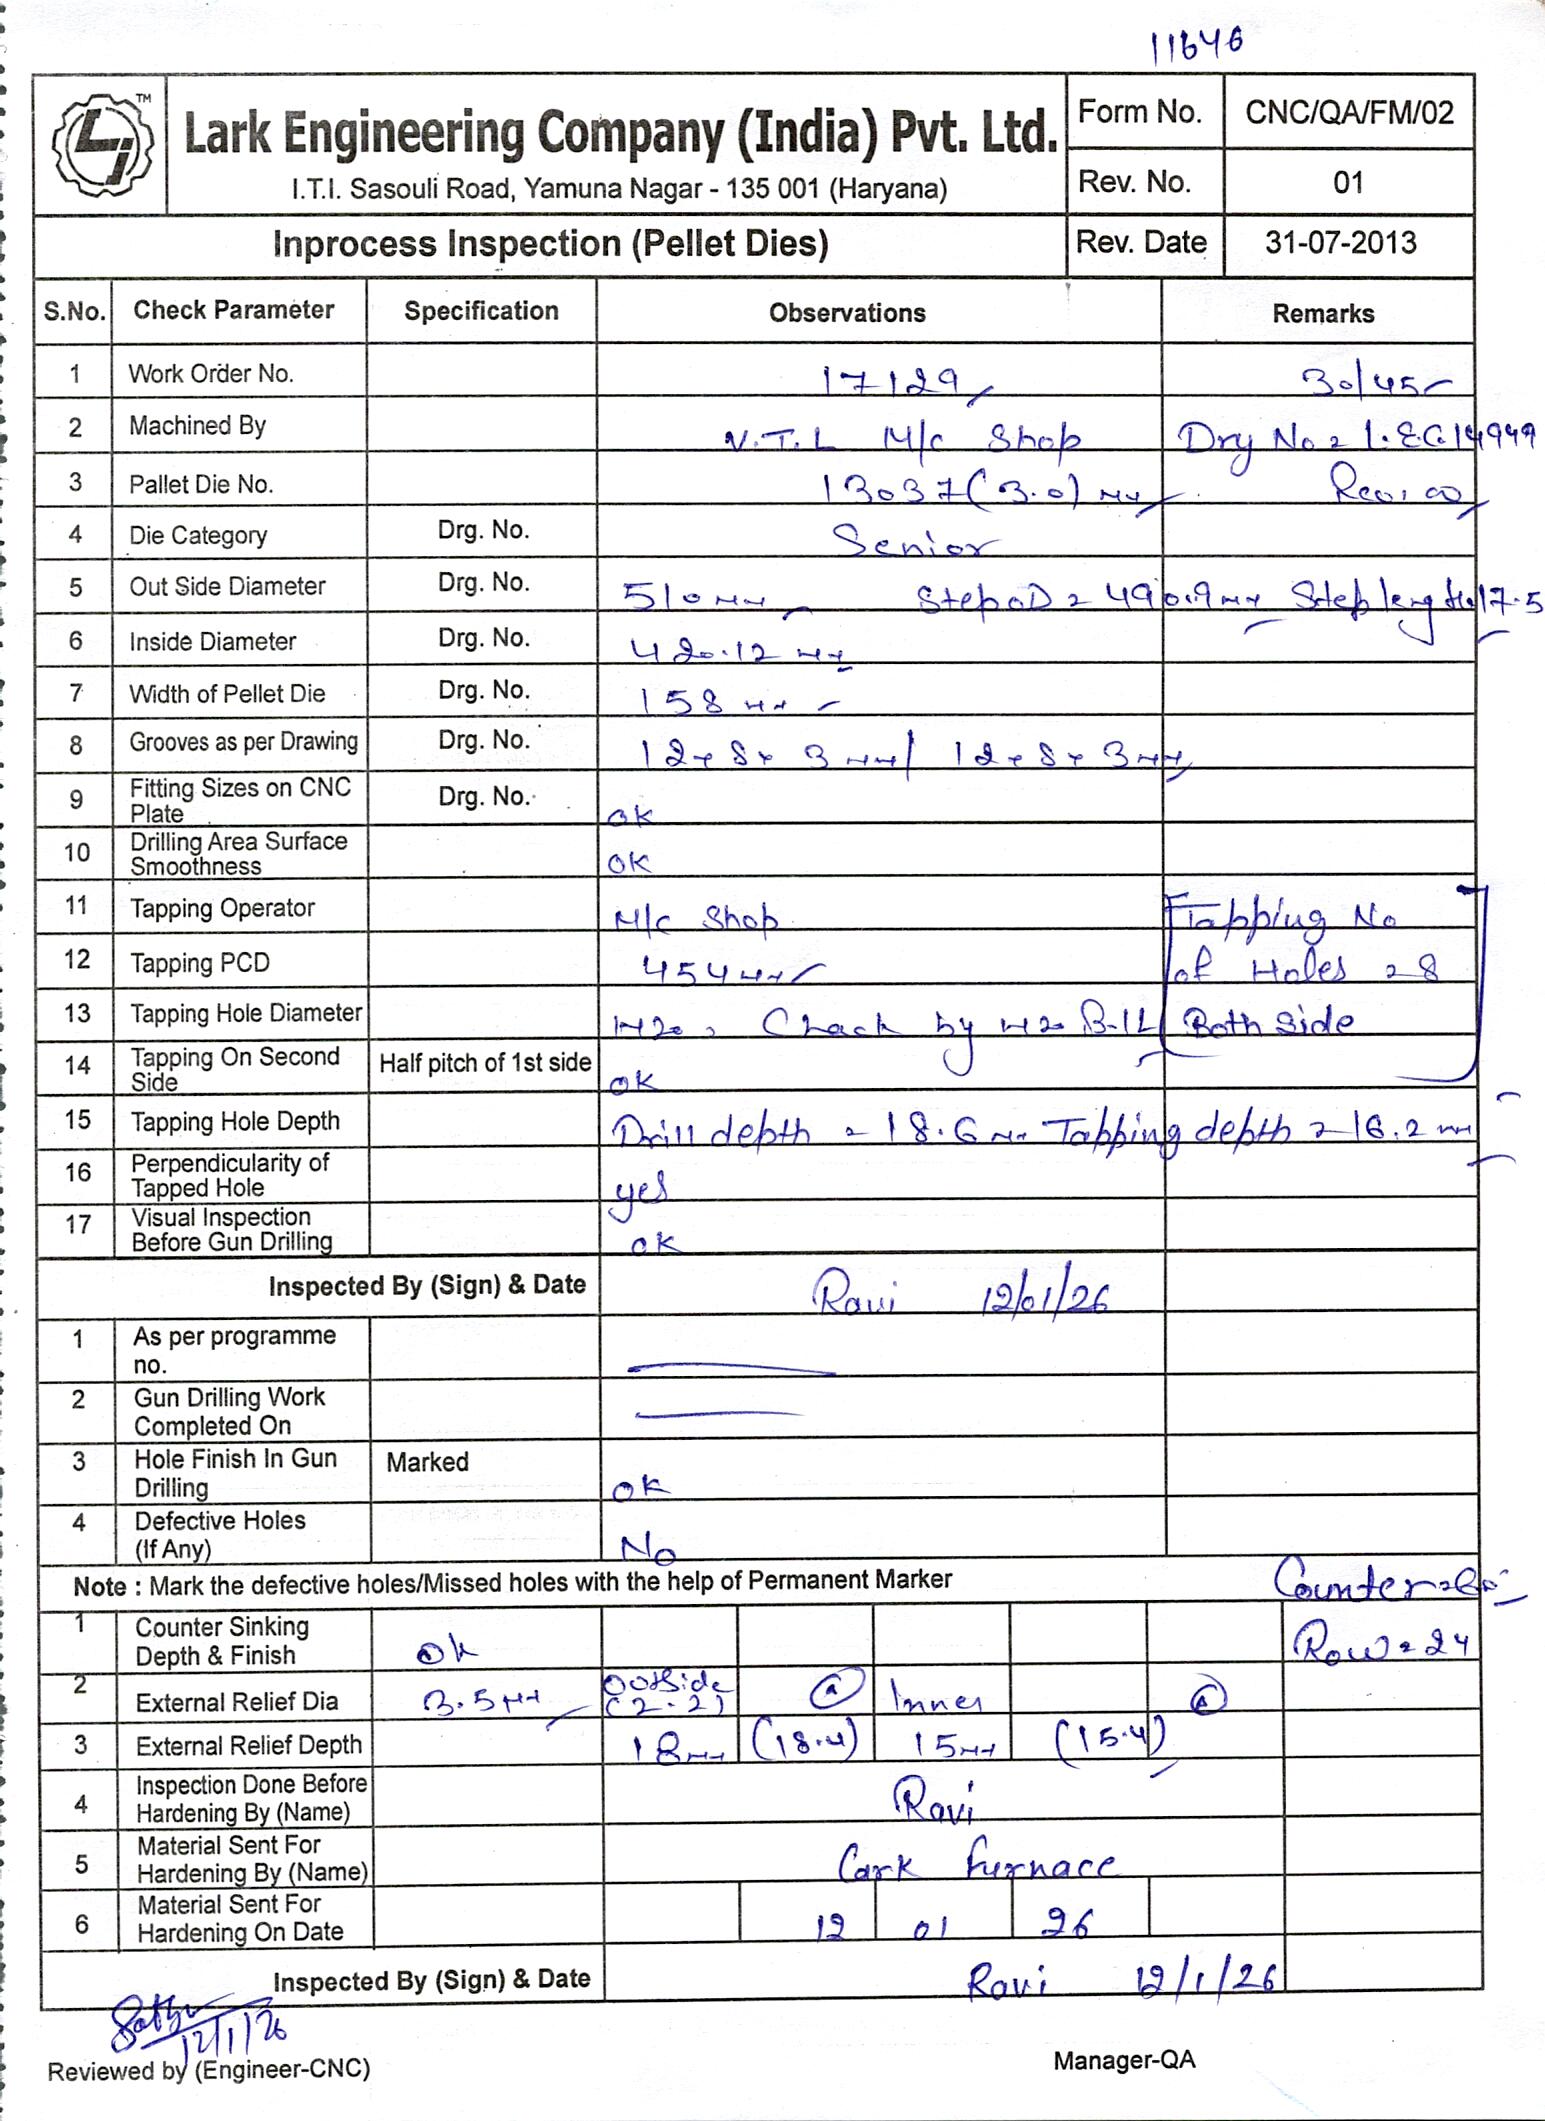 11646
TM
Lark Engineering Company (India) Pvt. Ltd.
I.T.I. Sasouli Road, Yamuna Nagar - 135 001 (Haryana)
Form No. CNC/QA/FM/02
Rev. No. 01
Inprocess Inspection (Pellet Dies) Rev. Date 31-07-2013
S.No. Check Parameter Specification Observations Remarks
1 Work Order No. 17129 30/45
2 Machined By V.T.L M/c Shop
3 Pallet Die No. 13037 (3.0)
4 Die Category Drg. No. Senior
5 Out Side Diameter Drg. No. 510 Step OD = 490.9 Step length 17.5
6 Inside Diameter Drg. No. 420.12
7 Width of Pellet Die Drg. No. 158
8 Grooves as per Drawing Drg. No. 12 x 8 x 3 mm / 12 x 8 x 3 mm
9 Fitting Sizes on CNC Plate Drg. No. ok
10 Drilling Area Surface Smoothness OK
11 Tapping Operator M/c Shop Tapping No
12 Tapping PCD 454 mm of Holes = 8
13 Tapping Hole Diameter M20, Chack by M20 Both Side
14 Tapping On Second Side Half pitch of 1st side ok
15 Tapping Hole Depth Drill depth = 18.6 mm Tapping depth = 16.2 mm
16 Perpendicularity of Tapped Hole yes
17 Visual Inspection Before Gun Drilling ok
Inspected By (Sign) & Date Ravi 12/01/26
1 As per programme no.
2 Gun Drilling Work Completed On
3 Hole Finish In Gun Drilling Marked ok
4 Defective Holes (If Any) No
Note : Mark the defective holes/Missed holes with the help of Permanent Marker
1 Counter Sinking Depth & Finish ok Row = 24
2 External Relief Dia 3.5 mm Outside (2.2) Inner
3 External Relief Depth 18 mm (18.4) 15 mm (15.4)
4 Inspection Done Before Hardening By (Name) Ravi
5 Material Sent For Hardening By (Name) Lark Furnace
6 Material Sent For Hardening On Date 12 01 26
Inspected By (Sign) & Date Ravi 12/1/26
12/1/26
Reviewed by (Engineer-CNC) Manager-QA